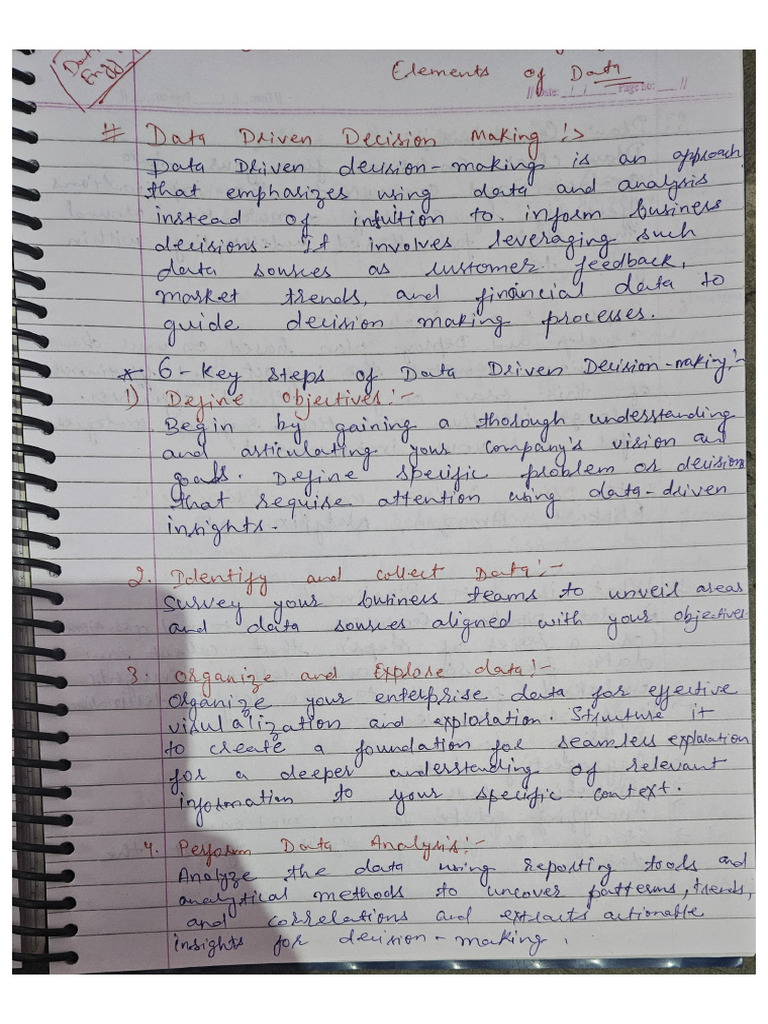 Data
Engg
Elements of Data
// Date: __/__/____ Page no: ____ //
# Data Driven Decision Making :->
Data Driven decision-making is an approach
that emphasizes using data and analysis
instead of intuition to inform business
decisions. It involves leveraging such
data sources as customer feedback,
market trends, and financial data to
guide decision making processes.
* 6-Key steps of Data Driven Decision-making:-
1) Define Objectives:-
Begin by gaining a thorough understanding
and articulating your company's vision and
goals. Define specific problem or decisions
that require attention using data-driven
insights.
2. Identify and collect Data:-
Survey your business teams to unveil areas
and data sources aligned with your objectives
3. Organize and Explore data:-
Organize your enterprise data for effective
visualization and exploration. Structure it
to create a foundation for seamless explalation
for a deeper understanding of relevant
information to your specific context.
4. Perform Data Analysis:-
Analyze the data using reporting tools and
analytical methods to uncover patterns, trends,
and correlations and extracts actionable
insights for decision-making.